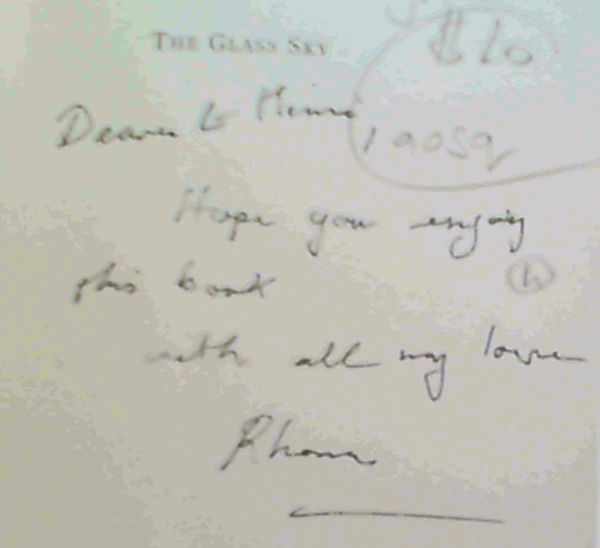 THE GLASS SKY
$10
Dearest Mimi,
Hope you enjoy
this book
h
with all my love
Rhona